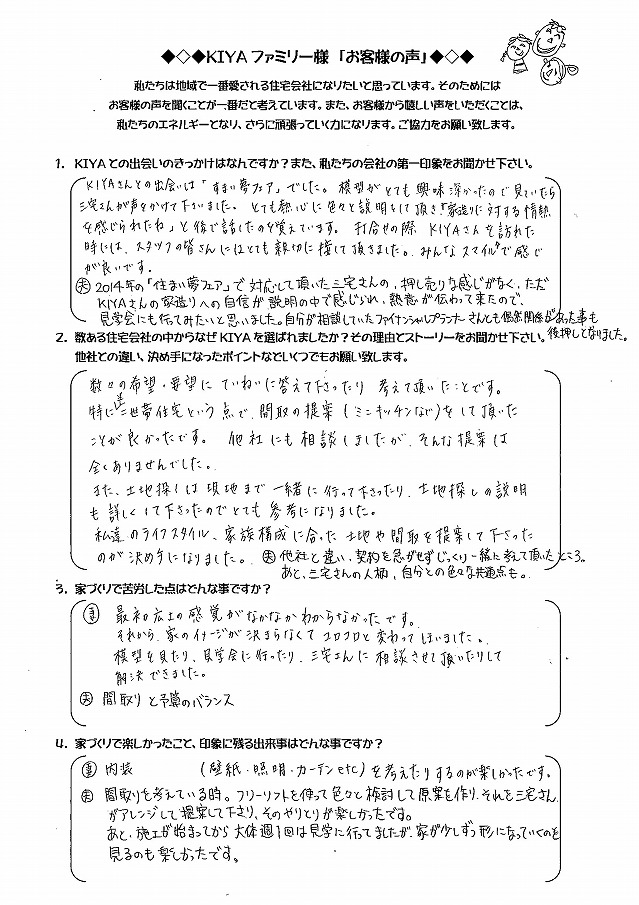 ◆◇◆KIYAファミリー様「お客様の声」◆◇◆
私たちは地域で一番愛される住宅会社になりたいと思っています。そのためには
お客様の声を聞くことが一番だと考えています。また、お客様から嬉しい声をいただくことは、
私たちのエネルギーとなり、さらに頑張っていく力になります。ご協力をお願い致します。
1. KIYAとの出会いのきっかけはなんですか？また、私たちの会社の第一印象をお聞かせ下さい。
KIYAさんとの出会いは「すまい夢フェア」でした。模型がとても興味深かったので見ていたら
三宅さんが声をかけて下さいました。とても熱心に色々と説明をして頂き「家造りに対する情熱
を感じられたね」と後で話したのを覚えています。打合せの際、KIYAさんを訪れた
時には、スタッフの皆さんにはとても親切に接して頂きました。みんなスマイルで感じ
が良いです。
夫 2014年の「住まい夢フェア」で対応して頂いた三宅さんの、押し売りな感じがなく、ただ
KIYAさんの家造りへの自信が説明の中で感じられ、熱意が伝わって来たので、
見学会にも行てみたいと思いました。自分が相談していたファイナンシャルプランナーさんとも偶然関係があった事も
後押しとなりました。
2. 数ある住宅会社の中からなぜKIYAを選ばれましたか？その理由とストーリーをお聞かせ下さい。
他社との違い、決め手になったポイントなどいくつでもお願い致します。
数々の希望・要望にていねいに答えて下さったり考えて頂いたことです。
特に準二世帯住宅という点で、間取の提案（ミニキッチンなど）をして頂いた
ことが良かったです。他社にも相談しましたが、そんな提案は
全くありませんでした。
また、土地探しは現地まで一緒に行って下さったり、土地探しの説明
も詳しくして下さったのでとても参考になりました。
私達のライフスタイル、家族構成に合った土地や間取を提案して下さった
のが決め手になりました。夫 他社と違い、契約を急がせずじっくり一緒に考えて頂いたところ。
あと、三宅さんの人柄、自分との色々な共通点も。
3. 家づくりで苦労した点はどんな事ですか？
妻 最初広さの感覚がなかなかわからなかったです。
それから、家のイメージが決まらなくてコロコロと変わってしまいました。
模型を見たり、見学会に行ったり、三宅さんに相談させて頂いたりして
解決できました。
夫 間取りと予算のバランス
4. 家づくりで楽しかったこと、印象に残る出来事はどんな事ですか？
妻 内装 （壁紙・照明・カーテンetc）を考えたりするのが楽しかったです。
夫 間取りを考えている時。フリーソフトを使って色々と検討して原案を作り、それを三宅さん
がアレンジして提案して下さり、そのやりとりが楽しかったです。
あと、施工が始まってから大体週1回は見学に行てましたが、家が少しずつ形になっていくのを
見るのも楽しかったです。